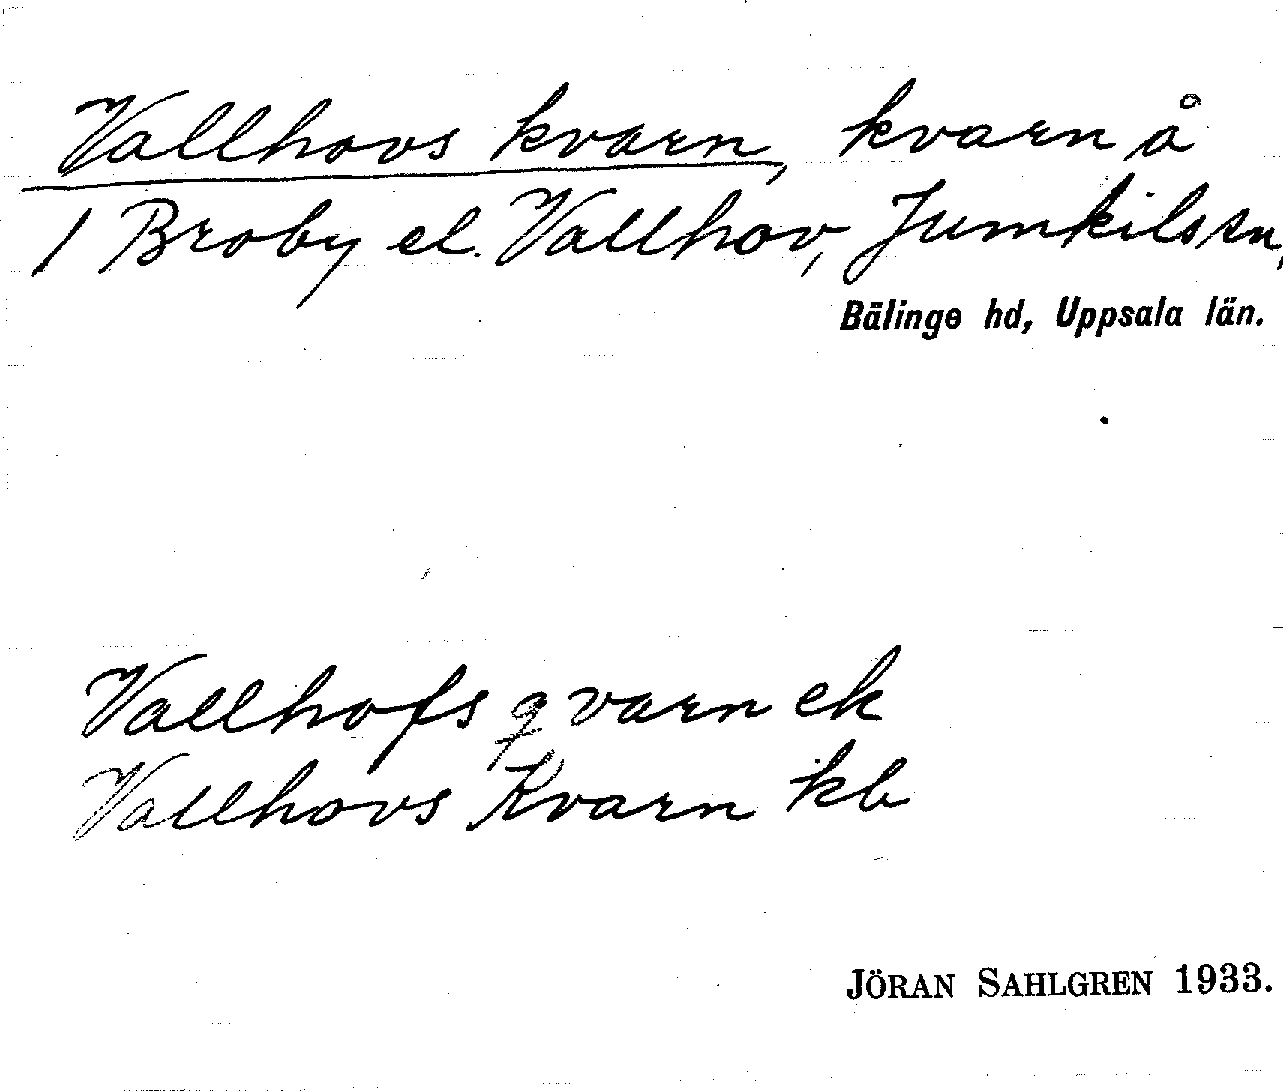 Vallhovs kvarn, kvarn å
1 Broby el. Vallhov, Jumkils sn,
Bälinge hd, Uppsala län.
Vallhofs qvarn ek
Vallhovs Kvarn kb
JÖRAN SAHLGREN 1933.